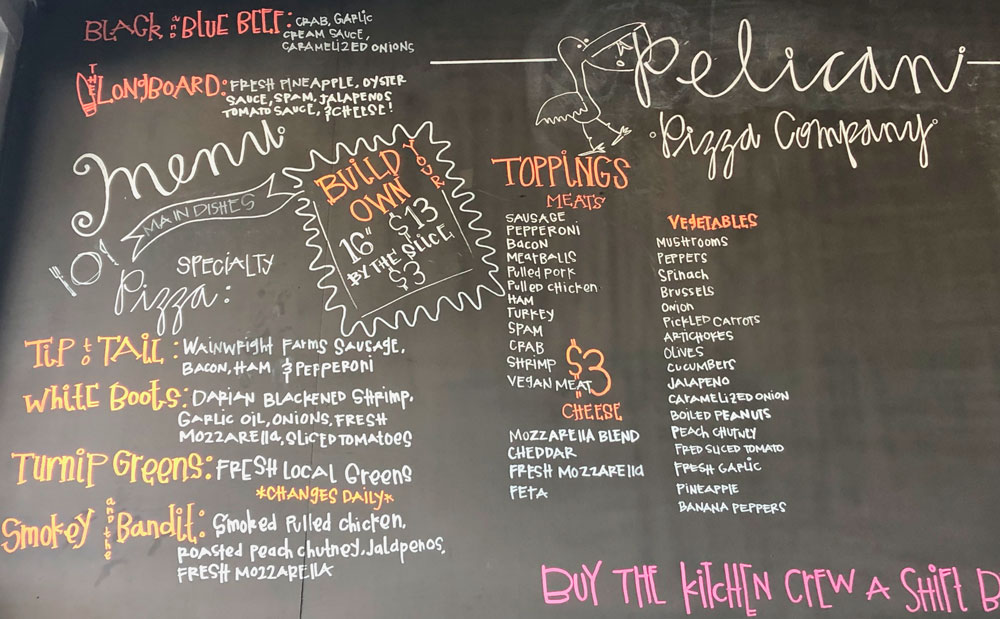 BLACK and BLUE BEEF: CRAB, GARLIC
CREAM SAUCE,
CARAMELIZED ONIONS
THE LONGBOARD: FRESH PINEAPPLE, OYSTER
SAUCE, SPAM, JALAPENOS
TOMATO SAUCE, & CHEESE!
Menu
MAIN DISHES
BUILD YOUR
OWN
16" $13
BY THE SLICE
$3
SPECIALTY
Pizza:
TIP to TAIL: WAINWRIGHT FARMS SAUSAGE,
BACON, HAM & PEPPERONI
WHITE BOOTS: DARIAN BLACKENED SHRIMP,
GARLIC OIL, ONIONS, FRESH
MOZZARELLA, SLICED TOMATOES
TURNIP GREENS: FRESH LOCAL GREENS
*CHANGES DAILY*
SMOKEY and the BANDIT: SMOKED PULLED CHICKEN,
ROASTED PEACH CHUTNEY, JALAPENOS,
FRESH MOZZARELLA
Pelican
Pizza Company
TOPPINGS
MEATS
SAUSAGE
PEPPERONI
BACON
MEATBALLS
PULLED PORK
PULLED CHICKEN
HAM
TURKEY
SPAM
CRAB
SHRIMP
VEGAN MEAT
$3
CHEESE
MOZZARELLA BLEND
CHEDDAR
FRESH MOZZARELLA
FETA
VEGETABLES
MUSHROOMS
PEPPERS
SPINACH
BRUSSELS
ONION
PICKLED CARROTS
ARTICHOKES
OLIVES
CUCUMBERS
JALAPENO
CARAMELIZED ONION
BOILED PEANUTS
PEACH CHUTNEY
FRED SLICED TOMATO
FRESH GARLIC
PINEAPPLE
BANANA PEPPERS
BUY THE KITCHEN CREW A SHIFT B